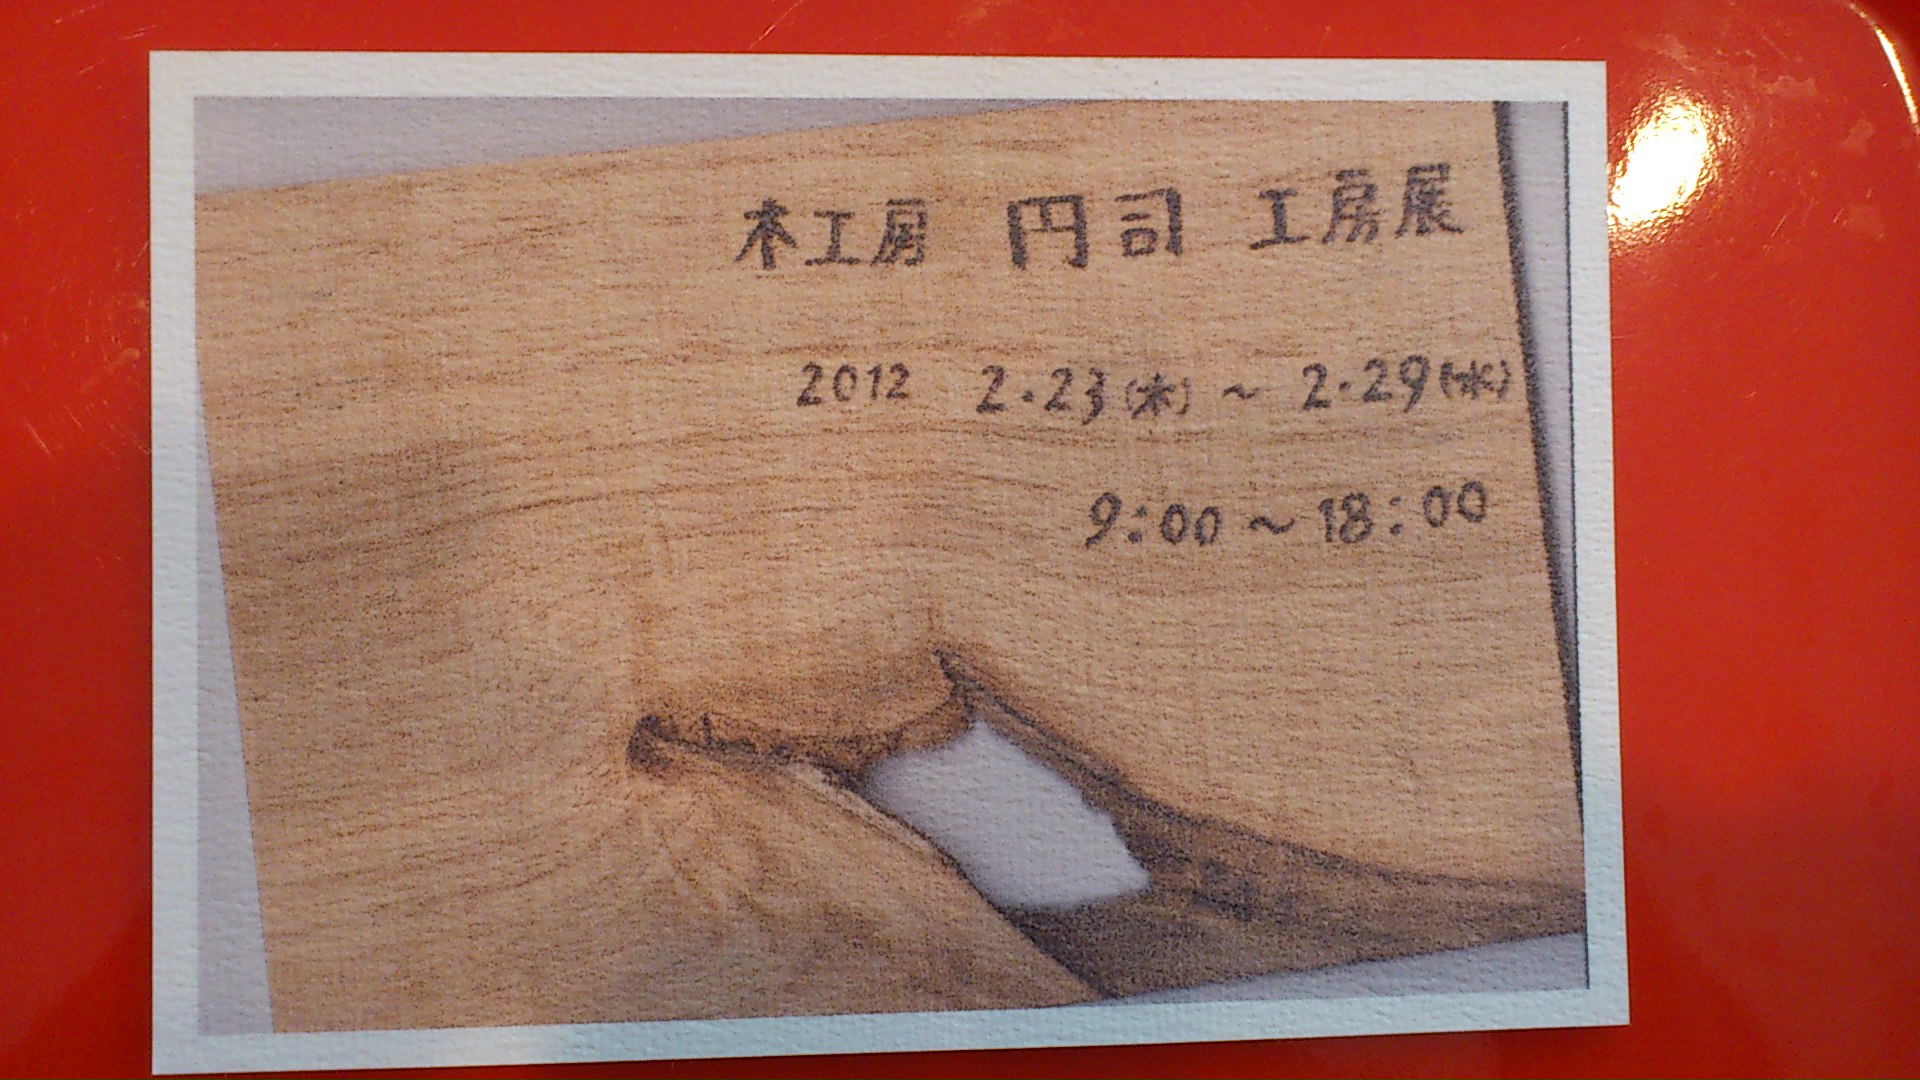 木工房 円司 工房展
2012 2.23(木) ~ 2.29(水)
9:00 ~ 18:00